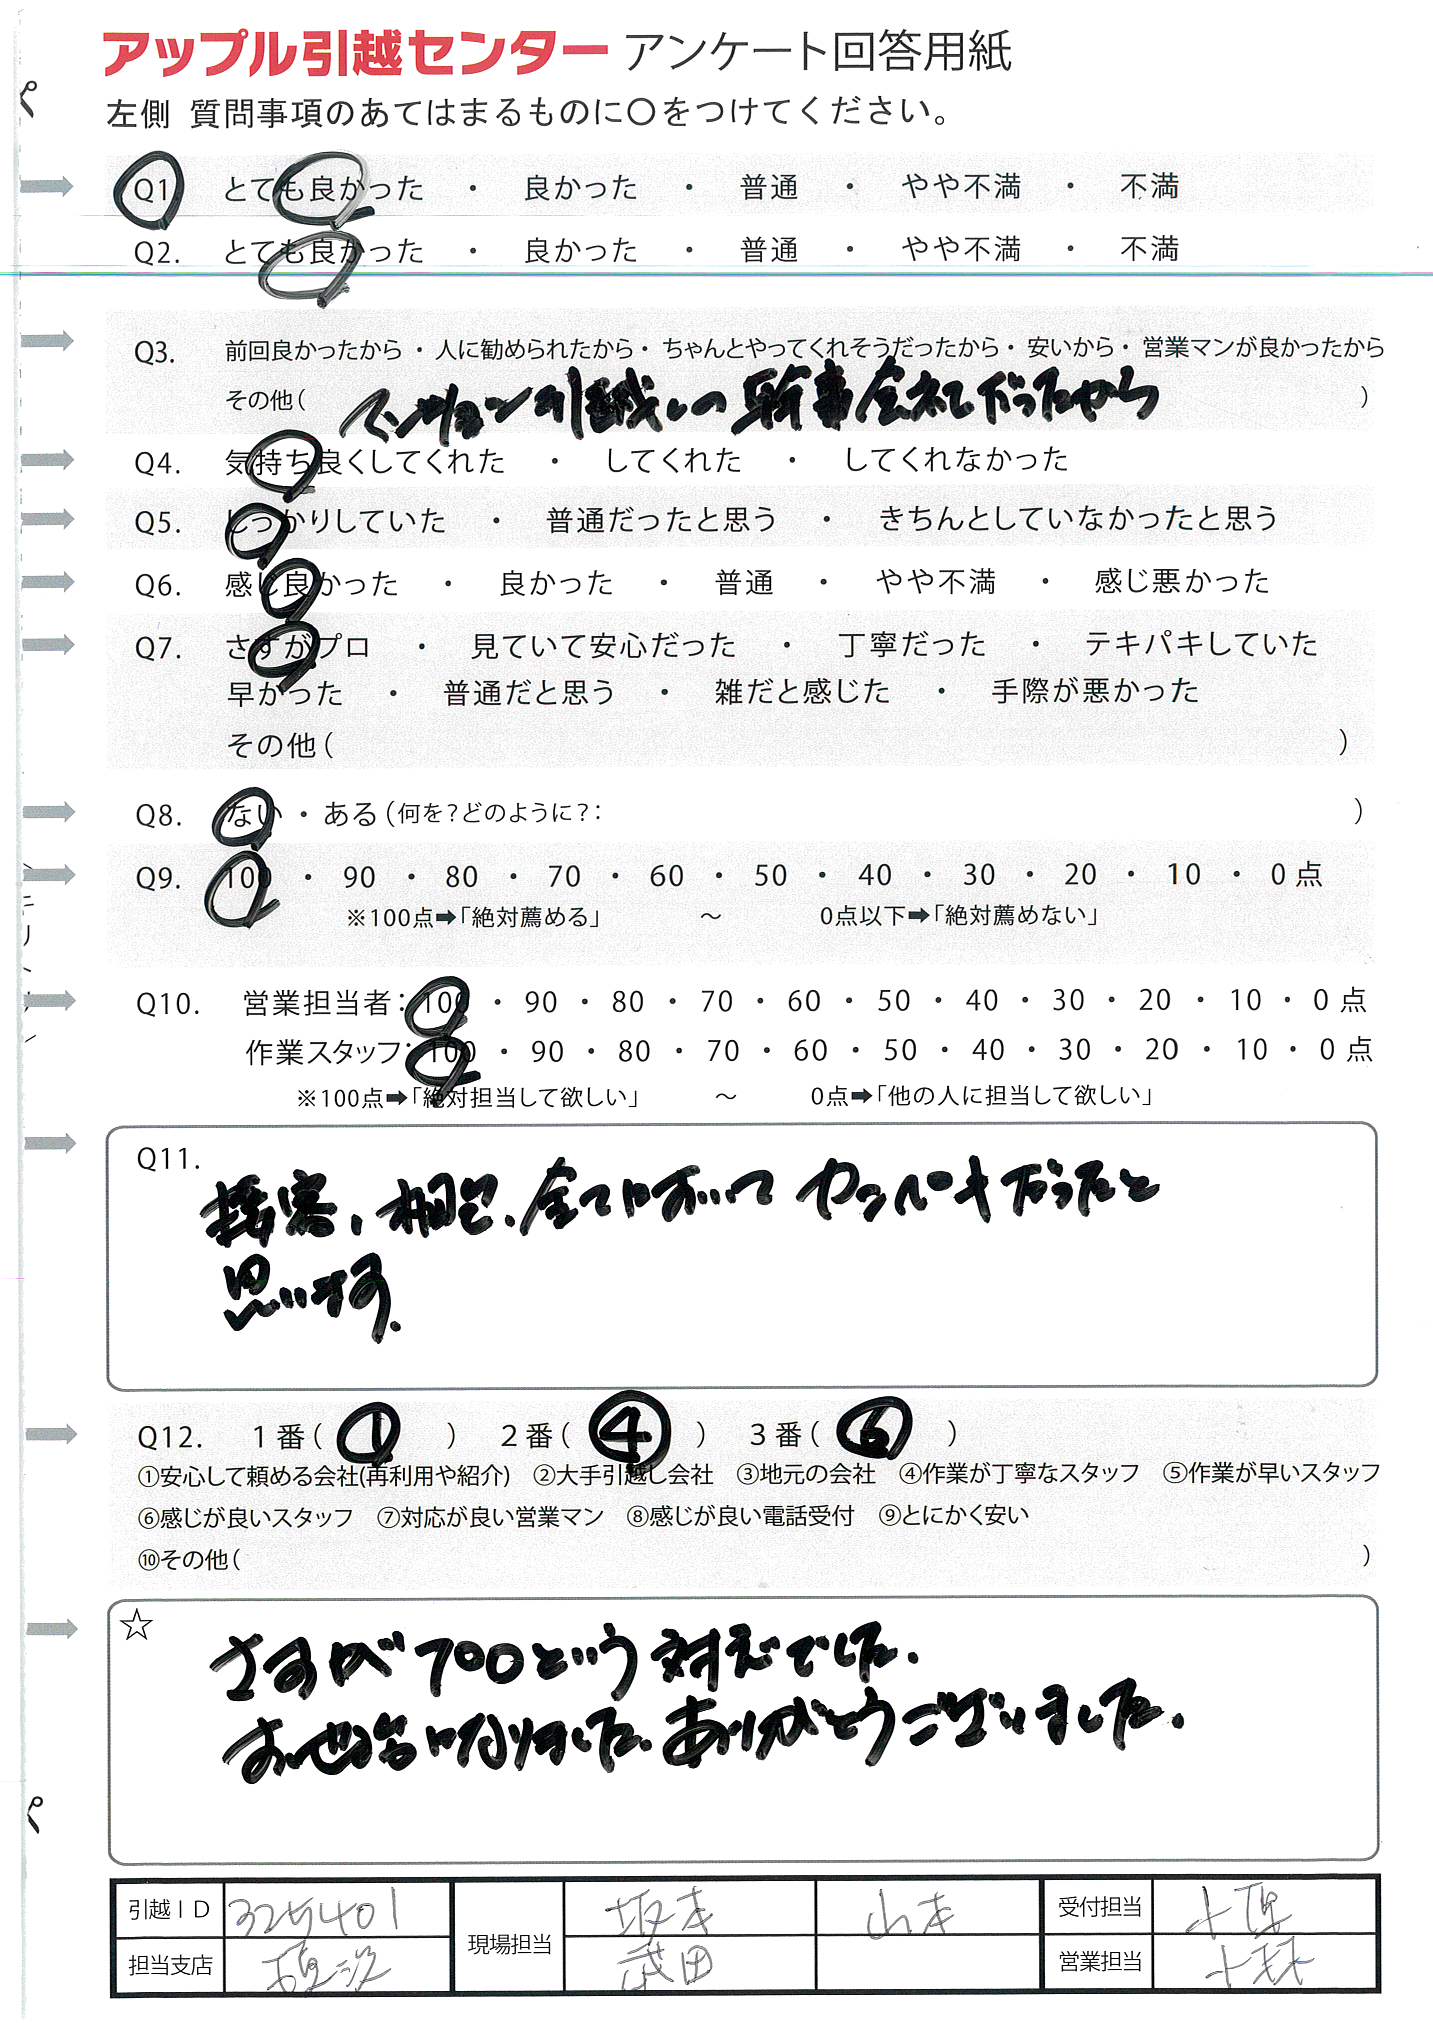 アップル引越センター アンケート回答用紙
左側 質問事項のあてはまるものに〇をつけてください。
Q1. とても良かった ・ 良かった ・ 普通 ・ やや不満 ・ 不満
Q2. とても良かった ・ 良かった ・ 普通 ・ やや不満 ・ 不満
Q3. 前回良かったから ・ 人に勧められたから ・ ちゃんとやってくれそうだったから ・ 安いから ・ 営業マンが良かったから
その他( マンション引越しの幹事会社だったから )
Q4. 気持ち良くしてくれた ・ してくれた ・ してくれなかった
Q5. しっかりしていた ・ 普通だったと思う ・ きちんとしていなかったと思う
Q6. 感じ良かった ・ 良かった ・ 普通 ・ やや不満 ・ 感じ悪かった
Q7. さすがプロ ・ 見ていて安心だった ・ 丁寧だった ・ テキパキしていた
早かった ・ 普通だと思う ・ 雑だと感じた ・ 手際が悪かった
その他( )
Q8. ない ・ ある (何を?どのように?: )
Q9. 100 ・ 90 ・ 80 ・ 70 ・ 60 ・ 50 ・ 40 ・ 30 ・ 20 ・ 10 ・ 0 点
※100点➡「絶対薦める」 ～ 0点以下➡「絶対薦めない」
Q10. 営業担当者: 100 ・ 90 ・ 80 ・ 70 ・ 60 ・ 50 ・ 40 ・ 30 ・ 20 ・ 10 ・ 0 点
作業スタッフ: 100 ・ 90 ・ 80 ・ 70 ・ 60 ・ 50 ・ 40 ・ 30 ・ 20 ・ 10 ・ 0 点
※100点➡「絶対担当して欲しい」 ～ 0点➡「他の人に担当して欲しい」
Q11.
接客、梱包、全てにおいて カンペキだったと
思います.
Q12. 1番( ① ) 2番( ④ ) 3番( ⑥ )
①安心して頼める会社(再利用や紹介) ②大手引越し会社 ③地元の会社 ④作業が丁寧なスタッフ ⑤作業が早いスタッフ
⑥感じが良いスタッフ ⑦対応が良い営業マン ⑧感じが良い電話受付 ⑨とにかく安い
⑩その他( )
☆
さすがプロという対応でした.
お世話になりました. ありがとうございました.
引越ID 325401 現場担当 坂本 山本 受付担当
担当支店 武田 営業担当